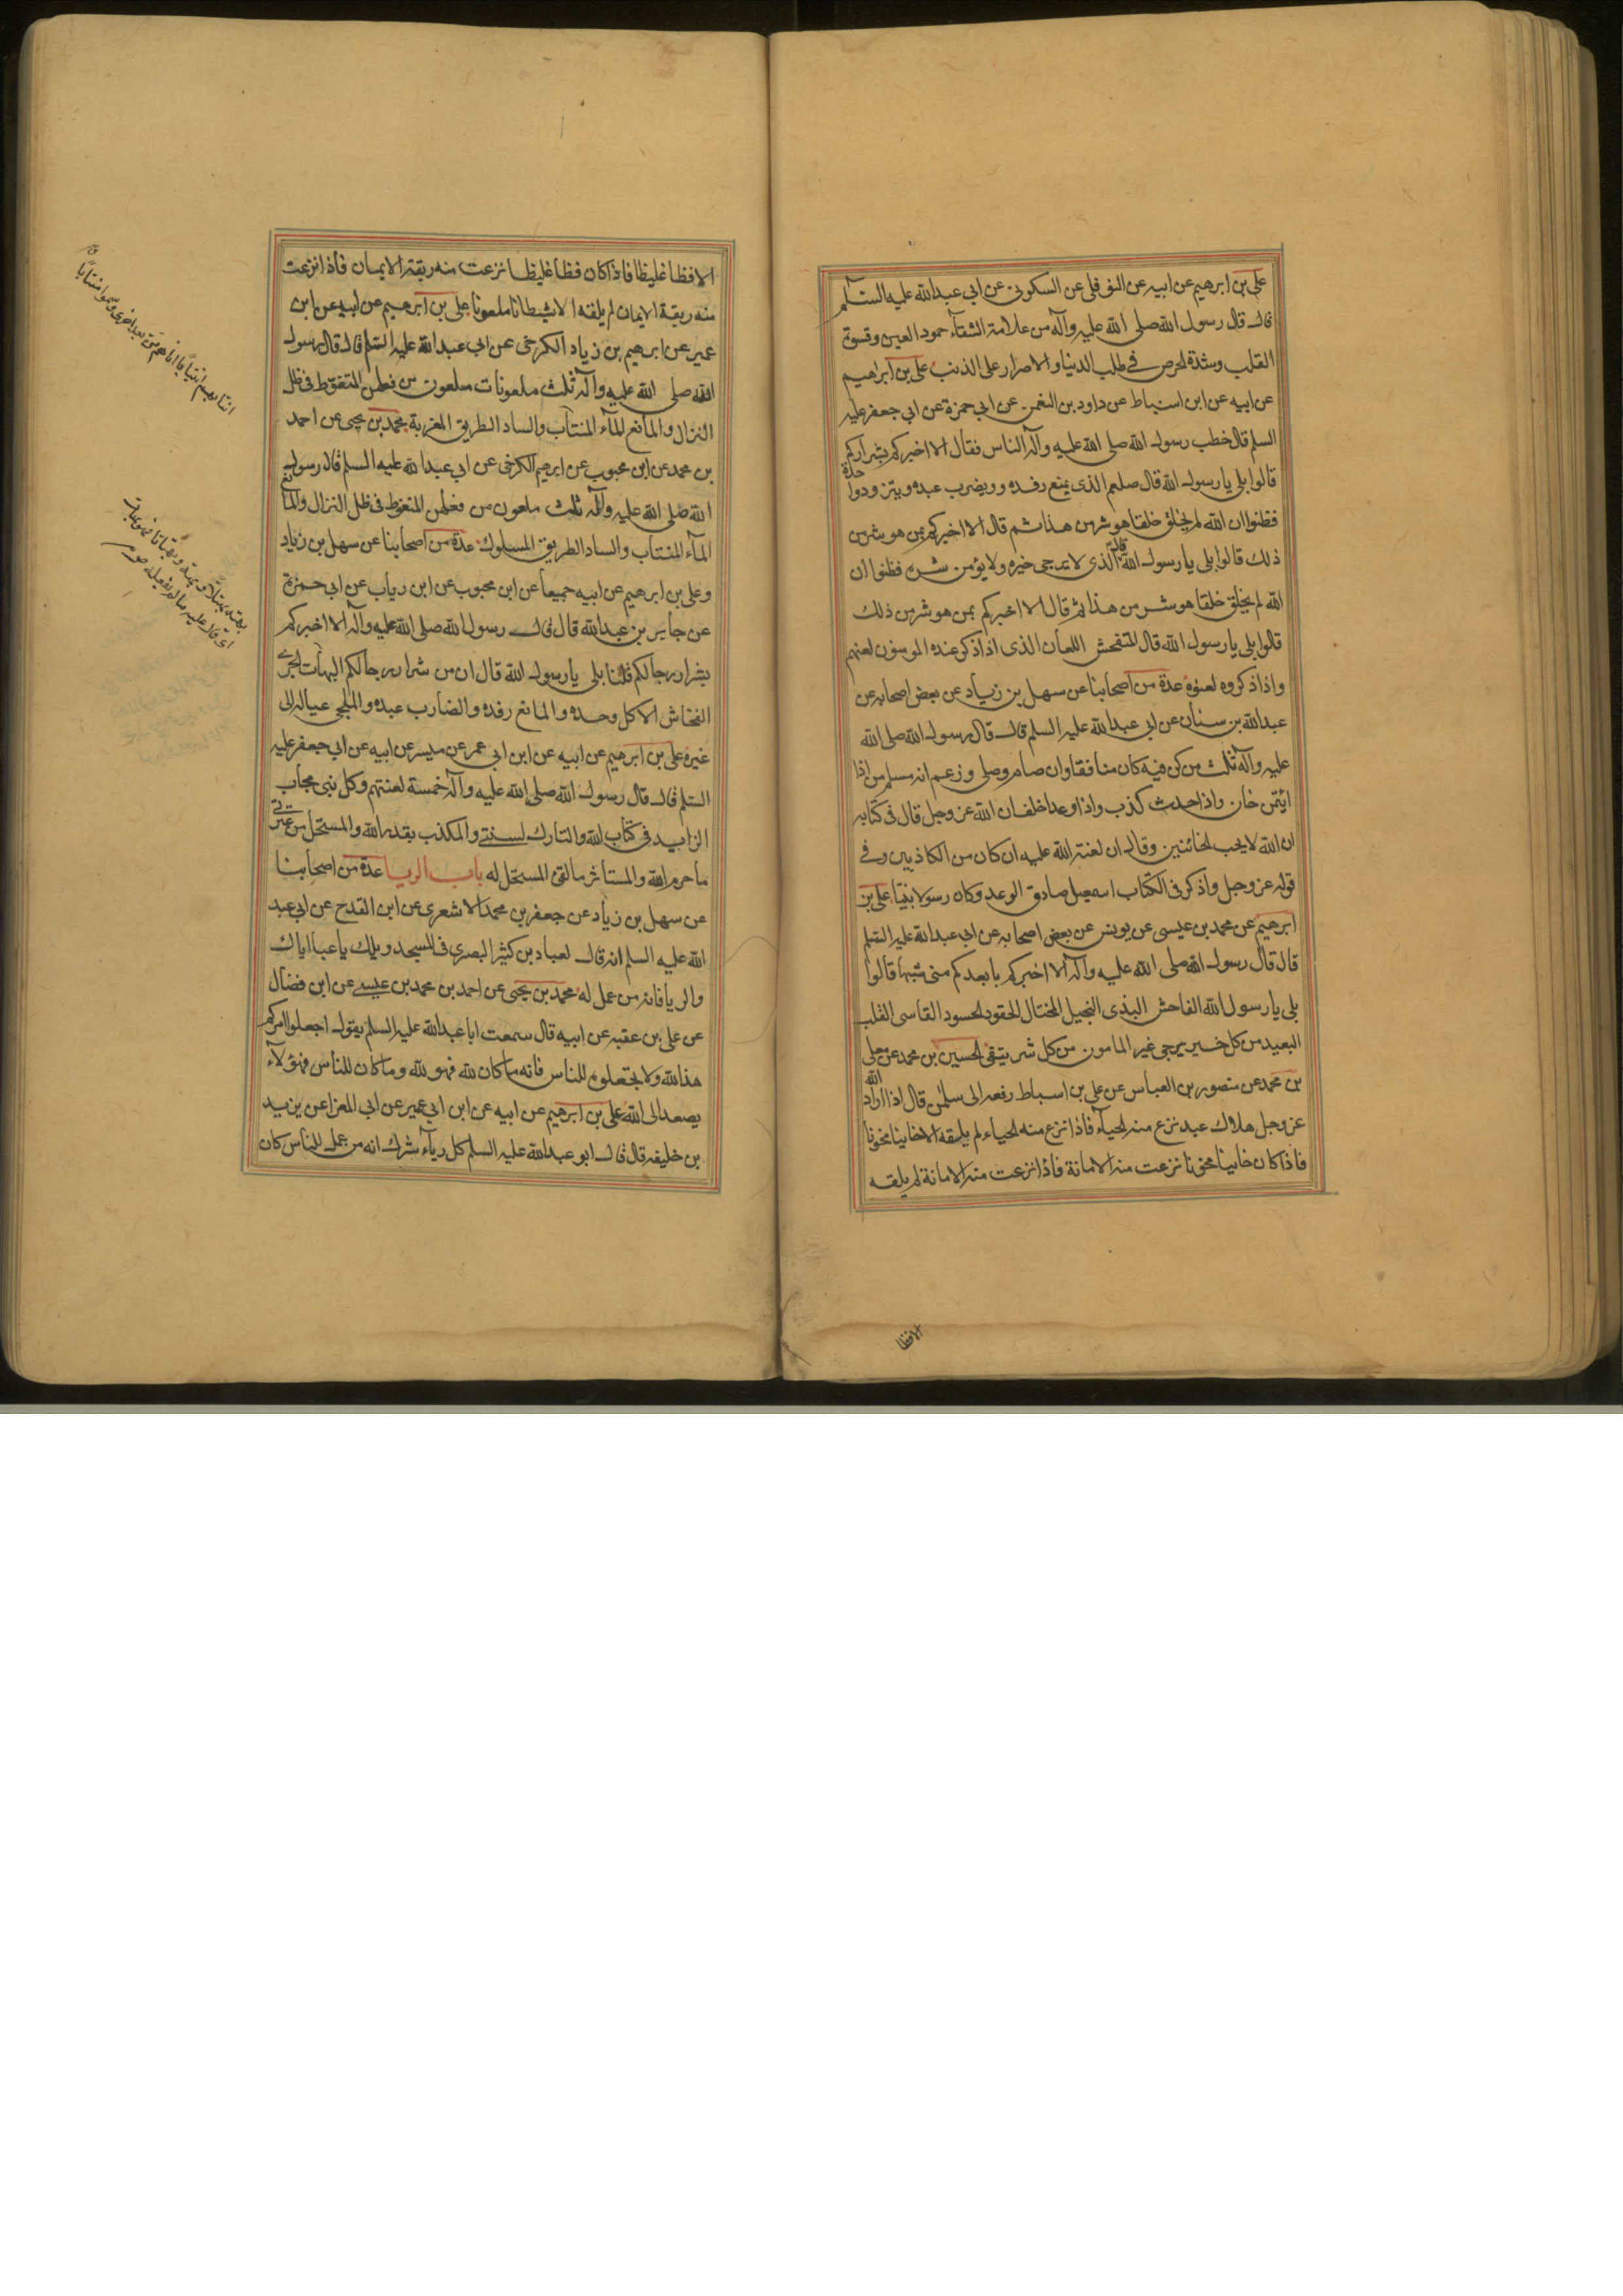 علي بن ابرهيم عن ابيه عن النوفلي عن السكوني عن ابي عبدالله عليه السلم
قال قال رسول الله صلى الله عليه وآله من علامة الشقاء جمود العين وقسوة
القلب وشدة الحرص في طلب الدنيا والاصرار على الذنب علي بن ابراهيم
عن ابيه عن ابن اسباط عن داود بن النعمن عن ابي حمزة عن ابي جعفر عليه
السلم قال خطب رسول الله صلى الله عليه وآله الناس فقال الا اخبركم بشراركم
قالوا بلى يا رسول الله قال صلعم الذي يمنع رفده ويضرب عبده ويتزود وحده
فظنوا ان الله لم يخلق خلقا هو شر من هذا ثم قال الا اخبركم بمن هو شر من
ذلك قالوا بلى يا رسول الله قال الذي لا يرجى خيره ولا يؤمن شره فظنوا ان
الله لم يخلق خلقا هو شر من هذا ثم قال الا اخبركم بمن هو شر من ذلك
قالوا بلى يا رسول الله قال المتفحش اللعان الذي اذا ذكر عنده المومنون لعنهم
واذا ذكروه لعنوه عدة من اصحابنا عن سهل بن زياد عن بعض اصحابه عن
عبدالله بن سنان عن ابي عبدالله عليه السلم قال قال رسول الله صلى الله
عليه وآله ثلث من كن فيه كان منافقا وان صام وصلى وزعم انه مسلم من اذا
ائتمن خان واذا حدث كذب واذا وعد اخلف ان الله عز وجل قال في كتابه
ان الله لا يحب الخائنين وقال ان لعنة الله عليه ان كان من الكاذبين وفي
قوله عز وجل واذكر في الكتاب اسمعيل صادق الوعد وكان رسولا نبيا علي بن
ابرهيم عن محمد بن عيسى عن يونس عن بعض اصحابه عن ابي عبدالله عليه السلم
قال قال رسول الله صلى الله عليه وآله الا اخبركم بابعدكم منى شبها قالوا
بلى يا رسول الله الفاحش البذى البخيل المختال الحقود الحسود القاسى القلب
البعيد من كل خير يرجى غير المامون من كل شر يتقى الحسين بن محمد عن معلى
بن محمد عن منصور بن العباس عن علي بن اسباط رفعه الى سلمن قال اذا اراد الله
عز وجل هلاك عبد نزع منه الحياء فاذا نزع منه الحياء لم يلقه الا خاينا مخونا
فاذا كان خاينا مخونا نزعت منه الامانة فاذا نزعت منه الامانة لم يلقه
الا فظا
الا فظا غليظا فاذا كان فظا غليظا نزعت منه ربقة الايمان فاذا نزعت
منه ربقة الايمان لم يلقه الا شيطانا ملعونا علي بن ابرهيم عن ابيه عن ابن
عمير عن ابرهيم بن زياد الكرخي عن ابي عبدالله عليه السلم قال قال رسول
الله صلى الله عليه وآله ثلث ملعونات ملعون من فعلهن المتغوط في ظل
النزال والمانع الماء المنتاب والساد الطريق المعربة محمد بن يحيى عن احمد
بن محمد عن ابن محبوب عن ابرهيم الكرخي عن ابي عبدالله عليه السلم قال رسول
الله صلى الله عليه وآله ثلث ملعون من فعلهن المتغوط في ظل النزال والمانع
الماء المنتاب والساد الطريق المسلوك عدة من اصحابنا عن سهل بن زياد
وعلي بن ابرهيم عن ابيه جميعا عن ابن محبوب عن ابن رياب عن ابي حمزة
عن جابر بن عبدالله قال قال رسول الله صلى الله عليه وآله الا اخبركم
بشرار رجالكم قلنا بلى يا رسول الله قال ان من شرار رجالكم البهات الجرى
الفحاش الاكل وحده والمانع رفده والضارب عبده والملجى عياله الى
غيره علي بن ابرهيم عن ابيه عن ابن ابي عمر عن ميسر عن ابيه عن ابي جعفر عليه
السلم قال قال رسول الله صلى الله عليه وآله خمسة لعنتهم وكل نبي مجاب
الزايد في كتاب الله والتارك لسنتي والمكذب بقدر الله والمستحل من عترتي
ما حرم الله والمستأثر بالفئ المستحل له باب الريا عدة من اصحابنا
عن سهل بن زياد عن جعفر بن محمد الاشعري عن ابن القدح عن ابي عبد
الله عليه السلم انه قال لعباد بن كثير البصري في المسجد ويلك يا عبا اياك
والريا فانه من عمل له محمد بن يحيى عن احمد بن محمد بن عيسى عن ابن فضال
عن علي بن عقبه عن ابيه قال سمعت ابا عبدالله عليه السلم يقول اجعلوا امركم
هذا لله ولا تجعلوه للناس فانه ما كان لله فهو لله وما كان للناس فهؤلاء
يصعد الى الله علي بن ابرهيم عن ابيه عن ابن ابي عمير عن ابي المعزا عن يزيد
بن خليفه قال قال ابو عبدالله عليه السلم كل رياء شرك انه من عمل للناس كان